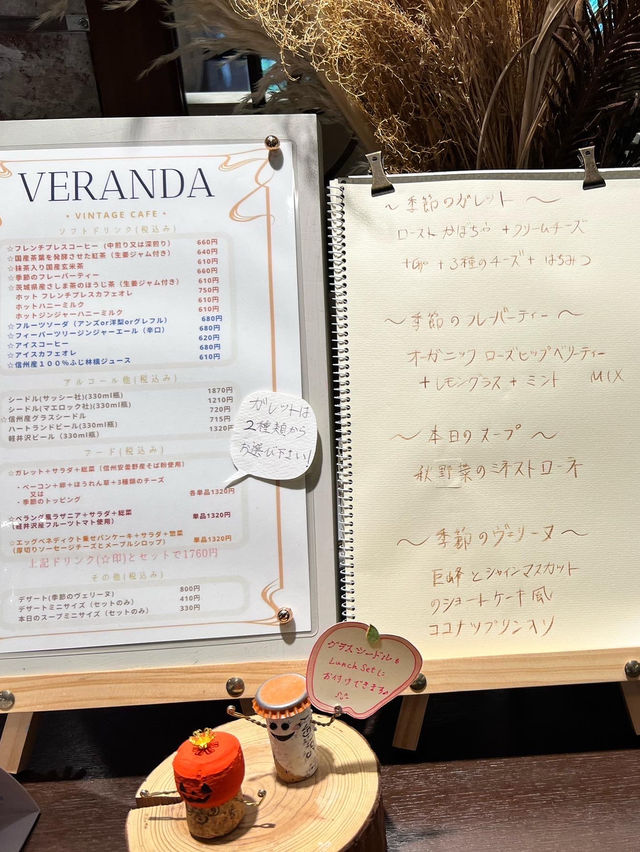 VERANDA
・VINTAGE CAFE・
ソフトドリンク(税込み)
☆フレンチプレスコーヒー（中煎り又は深煎り） 660円
☆国産茶葉を発酵させた紅茶（生姜ジャム付き） 640円
☆抹茶入り国産玄米茶 610円
☆季節のフレーバーティー 660円
☆茨城県産さしま茶のほうじ茶（生姜ジャム付き） 610円
ホット フレンチプレスカフェオレ 750円
ホットハニーミルク 610円
ホットジンジャーハニーミルク 640円
☆フルーツソーダ（アンズor洋梨orグレフル） 680円
☆フィーバーツリージンジャーエール（辛口） 680円
☆アイスコーヒー 620円
☆アイスカフェオレ 680円
☆信州産１００％ふじ林檎ジュース 610円
アルコール他(税込み)
シードル(サッシー社)(330ml瓶) 1870円
シードル(マエロック社)(330ml瓶) 1210円
☆信州産グラスシードル 720円
ハートランドビール(330ml瓶) 715円
軽井沢ビール（330ml瓶） 1320円
フード(税込み)
☆ガレット＋サラダ＋総菜（信州安曇野産そば粉使用）
・ベーコン＋卵＋ほうれん草＋3種類のチーズ
又は 各単品1320円
・季節のトッピング
☆ベランダ風ラザニア＋サラダ＋総菜 単品1320円
（軽井沢産フルーツトマト使用）
☆エッグベネディクト乗せパンケーキ＋サラダ＋惣菜 単品1320円
（厚切りソーセージチーズとメープルシロップ）
上記ドリンク(☆印)とセットで1760円
その他(税込み)
デザート(季節のヴェリーヌ) 800円
デザートミニサイズ（セットのみ） 410円
本日のスープミニサイズ（セットのみ） 330円
ガレットは
2種類から
お選び下さい！
〜季節のガレット〜
ローストかぼちゃ＋クリームチーズ
＋3種のチーズ＋はちみつ
〜季節のフレーバーティー〜
オーガニック ローズヒップベリーティー
＋レモングラス＋ミント MIX
〜本日のスープ〜
秋野菜のミネストローネ
〜季節のヴェリーヌ〜
巨峰とシャインマスカット
のショートケーキ風
ココナツプリン入り
グラスシードルも
Lunch Setに
お付けできます。